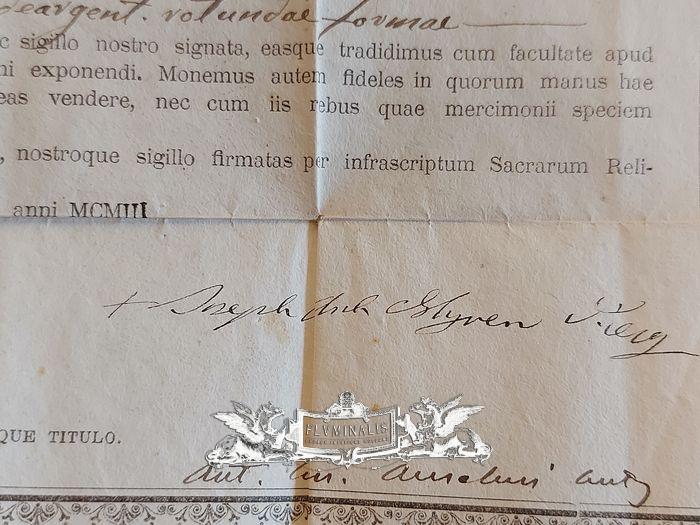 deargent. rotundae formae
c sigillo nostro signata, easque tradidimus cum facultate apud
ni exponendi. Monemus autem fideles in quorum manus hae
eas vendere, nec cum iis rebus quae mercimonii speciem
, nostroque sigillo firmatas per infrascriptum Sacrarum Reli-
anni MCMIII
+ Joseph
QUE TITULO.
FLVMINALIS